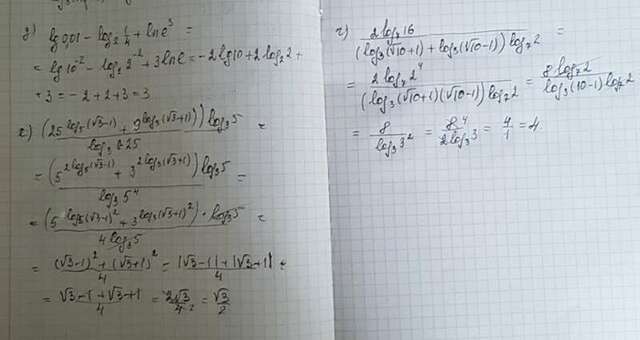 д) lg 0,01 - log₂ 1/4 + ln e³ =
= lg 10⁻² - log₂ 2⁻² + 3 ln e = -2 lg 10 + 2 log₂ 2 +
+ 3 = -2 + 2 + 3 = 3
(25^(log₅(√3-1)) + 9^(log₃(√3+1))) log₃5 / =
= (5^(2log₅(√3-1)) + 3^(2log₃(√3+1))) log₃5 / log₃5⁴ =
= (5^(log₅(√3-1)²) + 3^(log₃(√3+1)²)) · log₃5 / 4 log₃5 =
= (√3-1)² + (√3+1)² / 4 = |√3-1| + |√3+1| / 4 =
= √3-1+√3+1 / 4 = 2√3 / 4 = √3 / 2
г) 2 log₇16 / (log₃(√10+1) + log₃(√10-1)) log₇2 =
= 2 log₇2⁴ / (log₃(√10+1)(√10-1)) log₇2 = 8 log₇2 / log₃(10-1) log₇2
= 8 / log₃3² = 8 4 / 2 log₃3 = 4/1 = 4